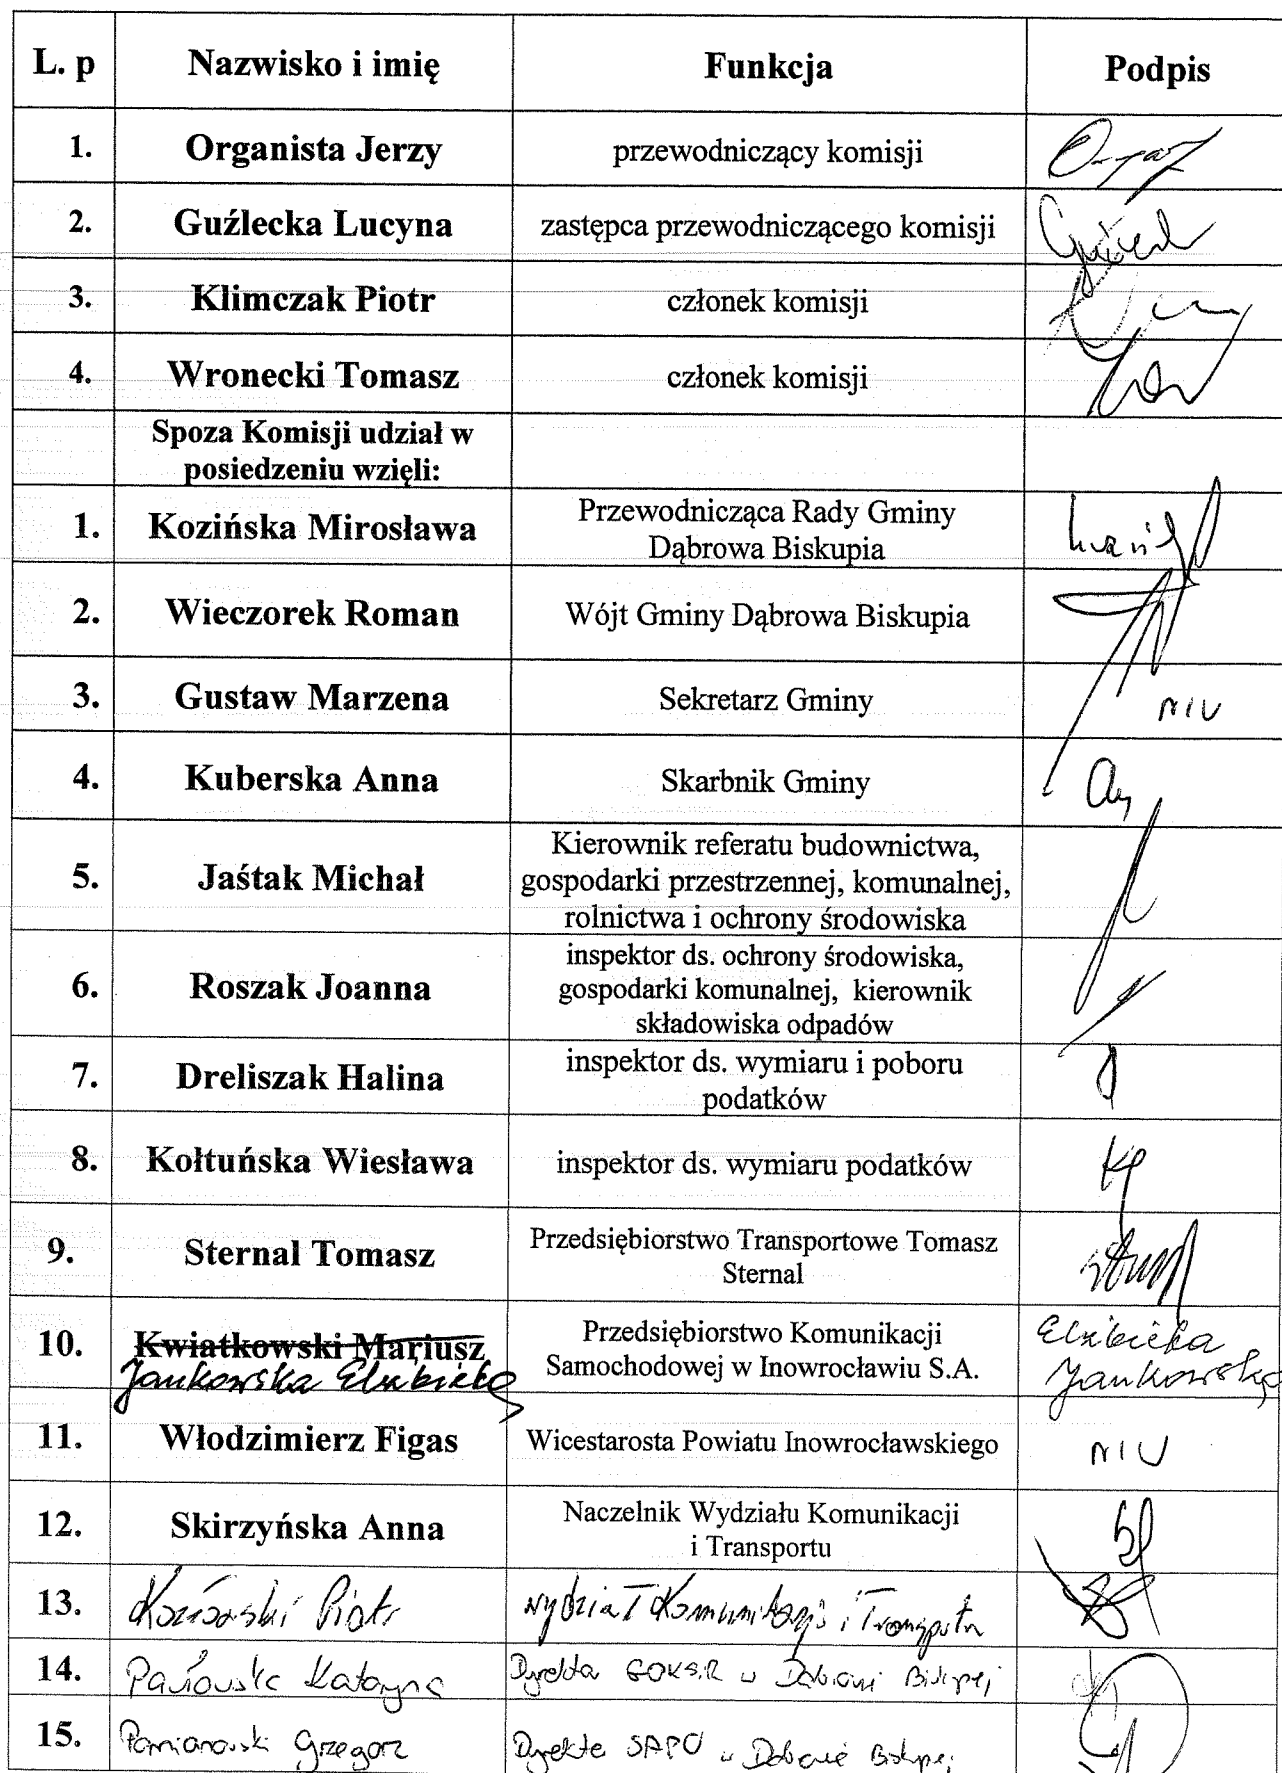 L. p Nazwisko i imię Funkcja Podpis
1. Organista Jerzy przewodniczący komisji
2. Guźlecka Lucyna zastępca przewodniczącego komisji
3. Klimczak Piotr członek komisji
4. Wronecki Tomasz członek komisji
Spoza Komisji udział w
posiedzeniu wzięli:
1. Kozińska Mirosława Przewodnicząca Rady Gminy
Dąbrowa Biskupia
2. Wieczorek Roman Wójt Gminy Dąbrowa Biskupia
3. Gustaw Marzena Sekretarz Gminy
4. Kuberska Anna Skarbnik Gminy
5. Jaśtak Michał Kierownik referatu budownictwa,
gospodarki przestrzennej, komunalnej,
rolnictwa i ochrony środowiska
6. Roszak Joanna inspektor ds. ochrony środowiska,
gospodarki komunalnej, kierownik
składowiska odpadów
7. Dreliszak Halina inspektor ds. wymiaru i poboru
podatków
8. Kołtuńska Wiesława inspektor ds. wymiaru podatków
9. Sternal Tomasz Przedsiębiorstwo Transportowe Tomasz
Sternal
10. Kwiatkowski Mariusz Przedsiębiorstwo Komunikacji Elżbieta
Jankowska Elżbieta Samochodowej w Inowrocławiu S.A. Jankowska
11. Włodzimierz Figas Wicestarosta Powiatu Inowrocławskiego
12. Skirzyńska Anna Naczelnik Wydziału Komunikacji
i Transportu
13. Piotr Wydział Komunikacji i Transportu
14. Pawłowska Katarzyna Dyrektor GOKSiR w Dąbrowie Biskupiej
15. Pomianowski Grzegorz Dyrektor w Dąbrowie Biskupiej